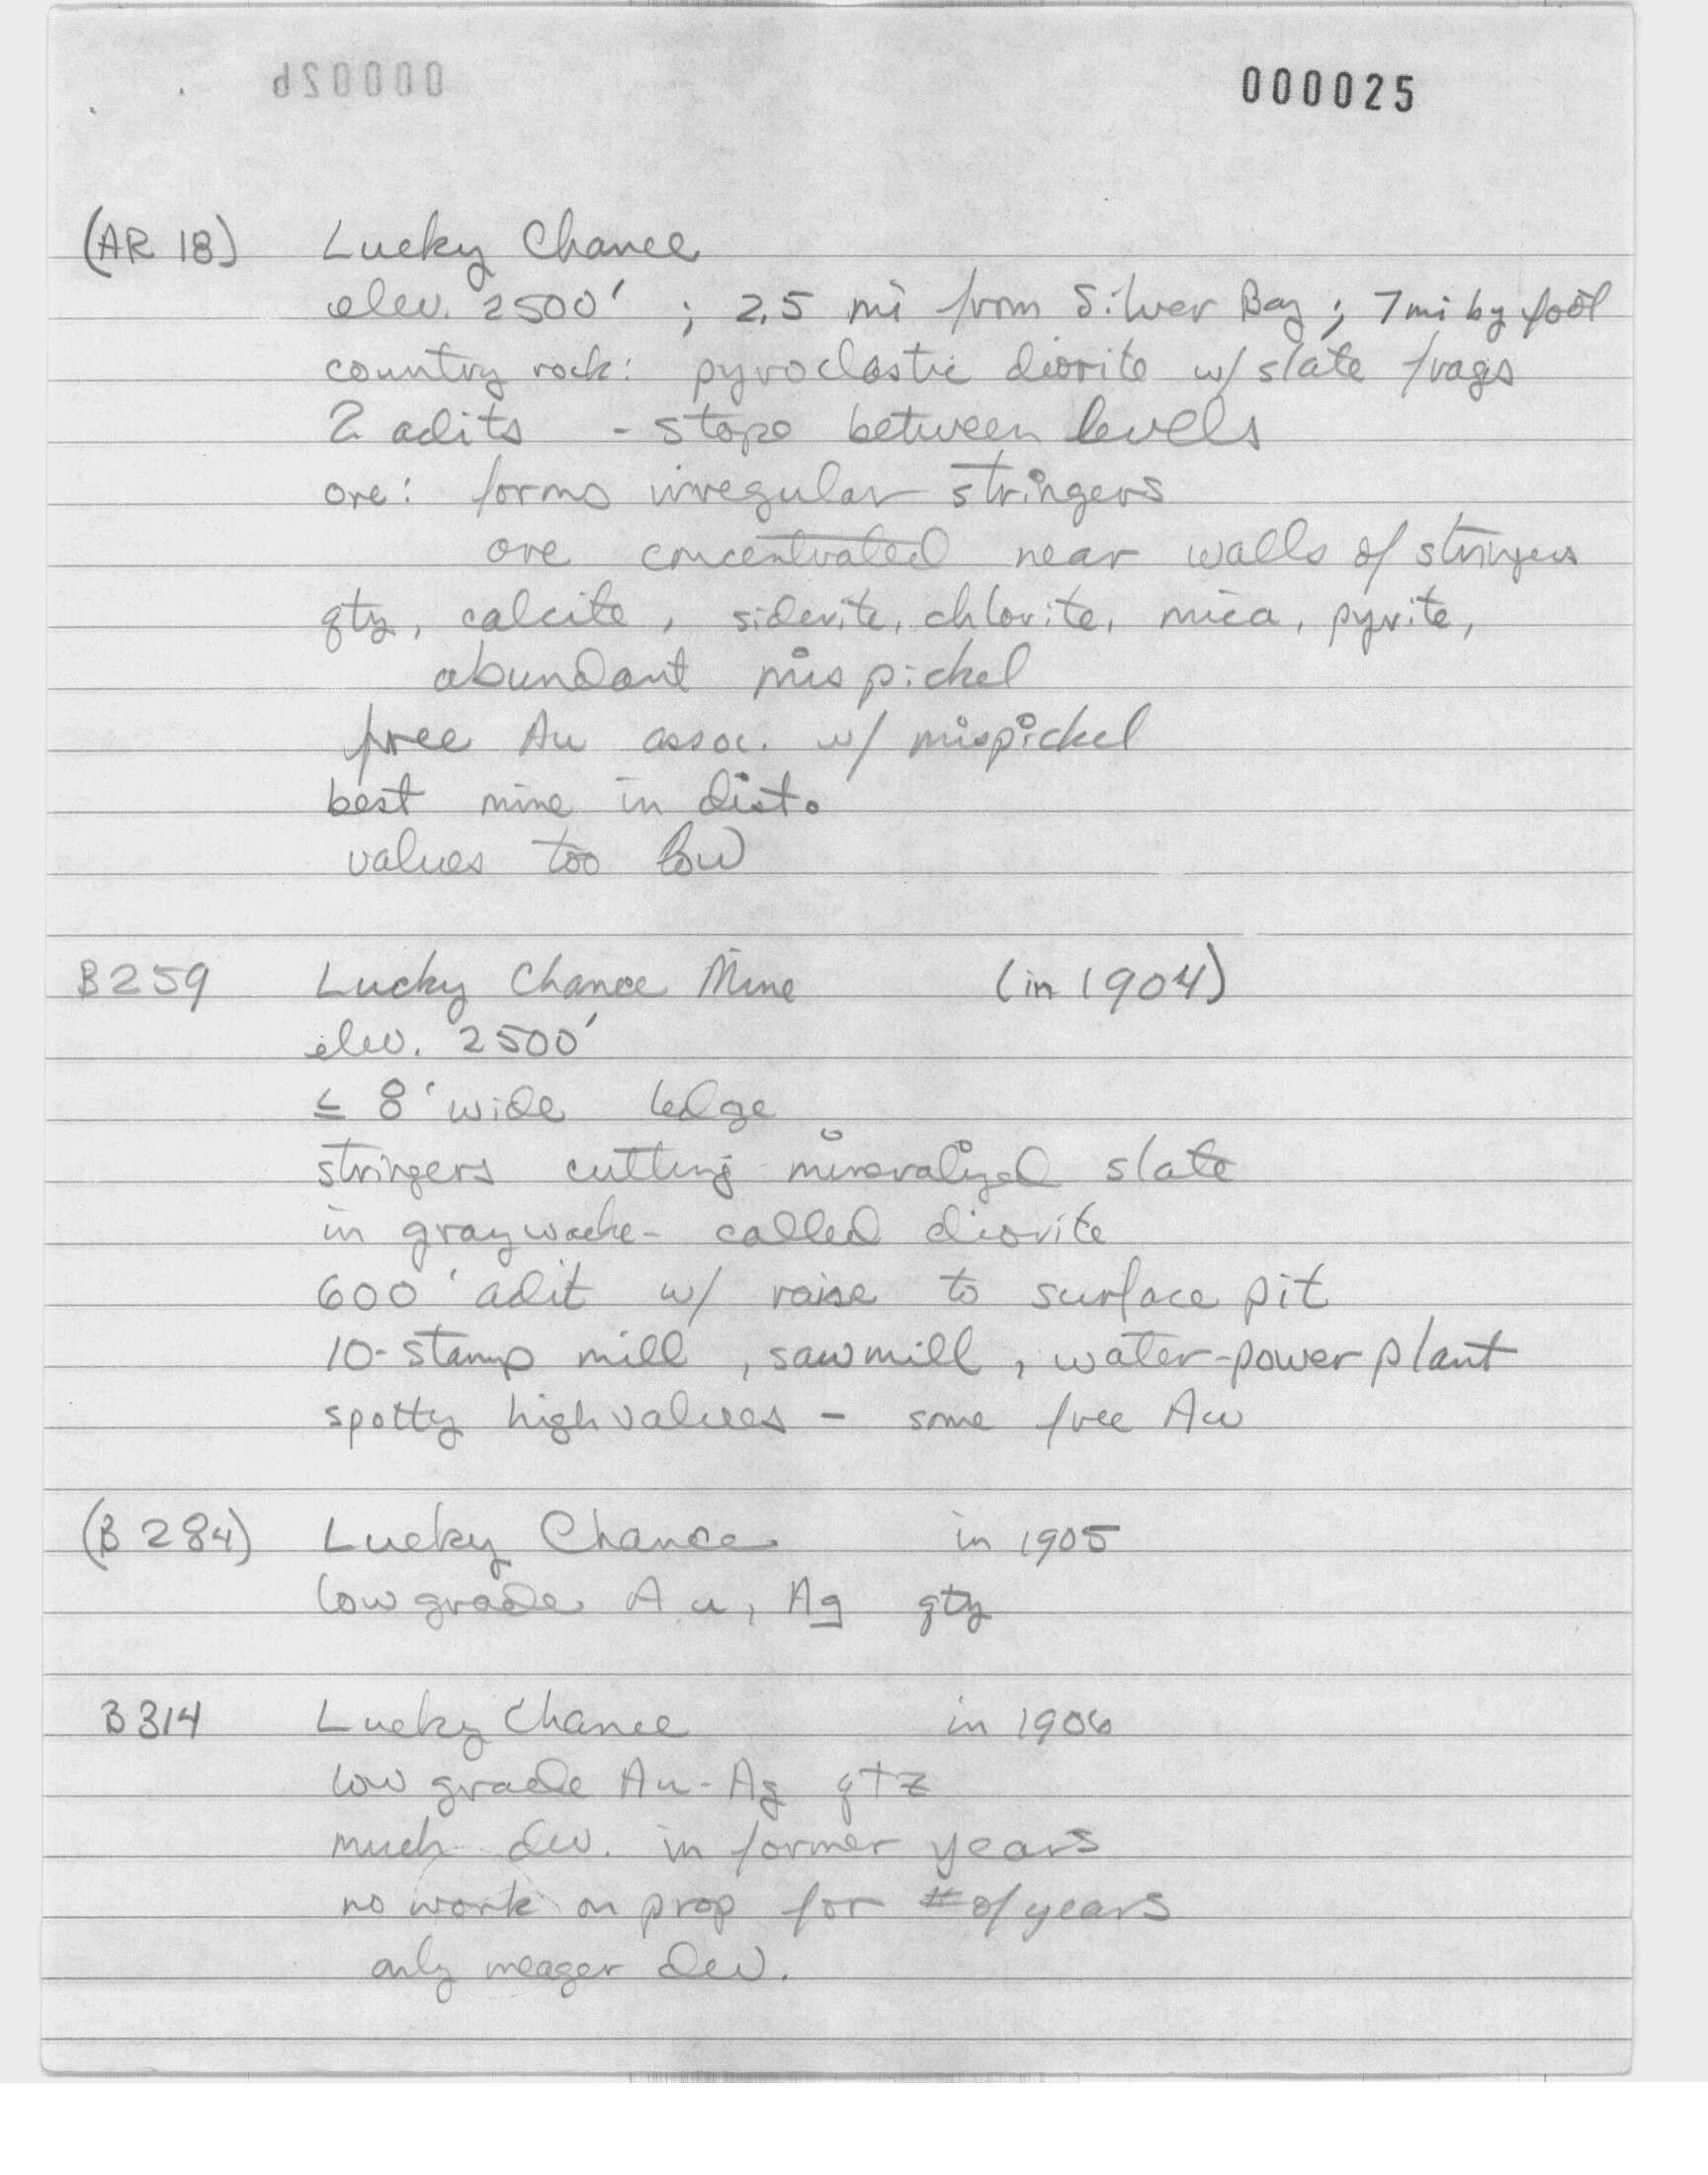 000025
(AR 18) Lucky Chance
elev. 2500' ; 2.5 mi from Silver Bay ; 7 mi by foot
country rock: pyroclastic diorite w/ slate frags
2 adits - stope between levels
ore: forms irregular stringers
ore concentrated near walls of stringers
qtz, calcite, siderite, chlorite, mica, pyrite,
abundant mispickel
free Au assoc. w/ mispickel
best mine in dist.
values too low
B259 Lucky Chance Mine (in 1904)
elev. 2500'
≤ 8' wide ledge
stringers cutting mineralized slate
in graywacke - called diorite
600' adit w/ raise to surface pit
10-stamp mill, sawmill, water-power plant
spotty high values - some free Au
(B 284) Lucky Chance in 1905
low grade Au, Ag qtz
B314 Lucky Chance in 1906
low grade Au-Ag qtz
much dev. in former years
no work on prop for # of years
only meager dev.